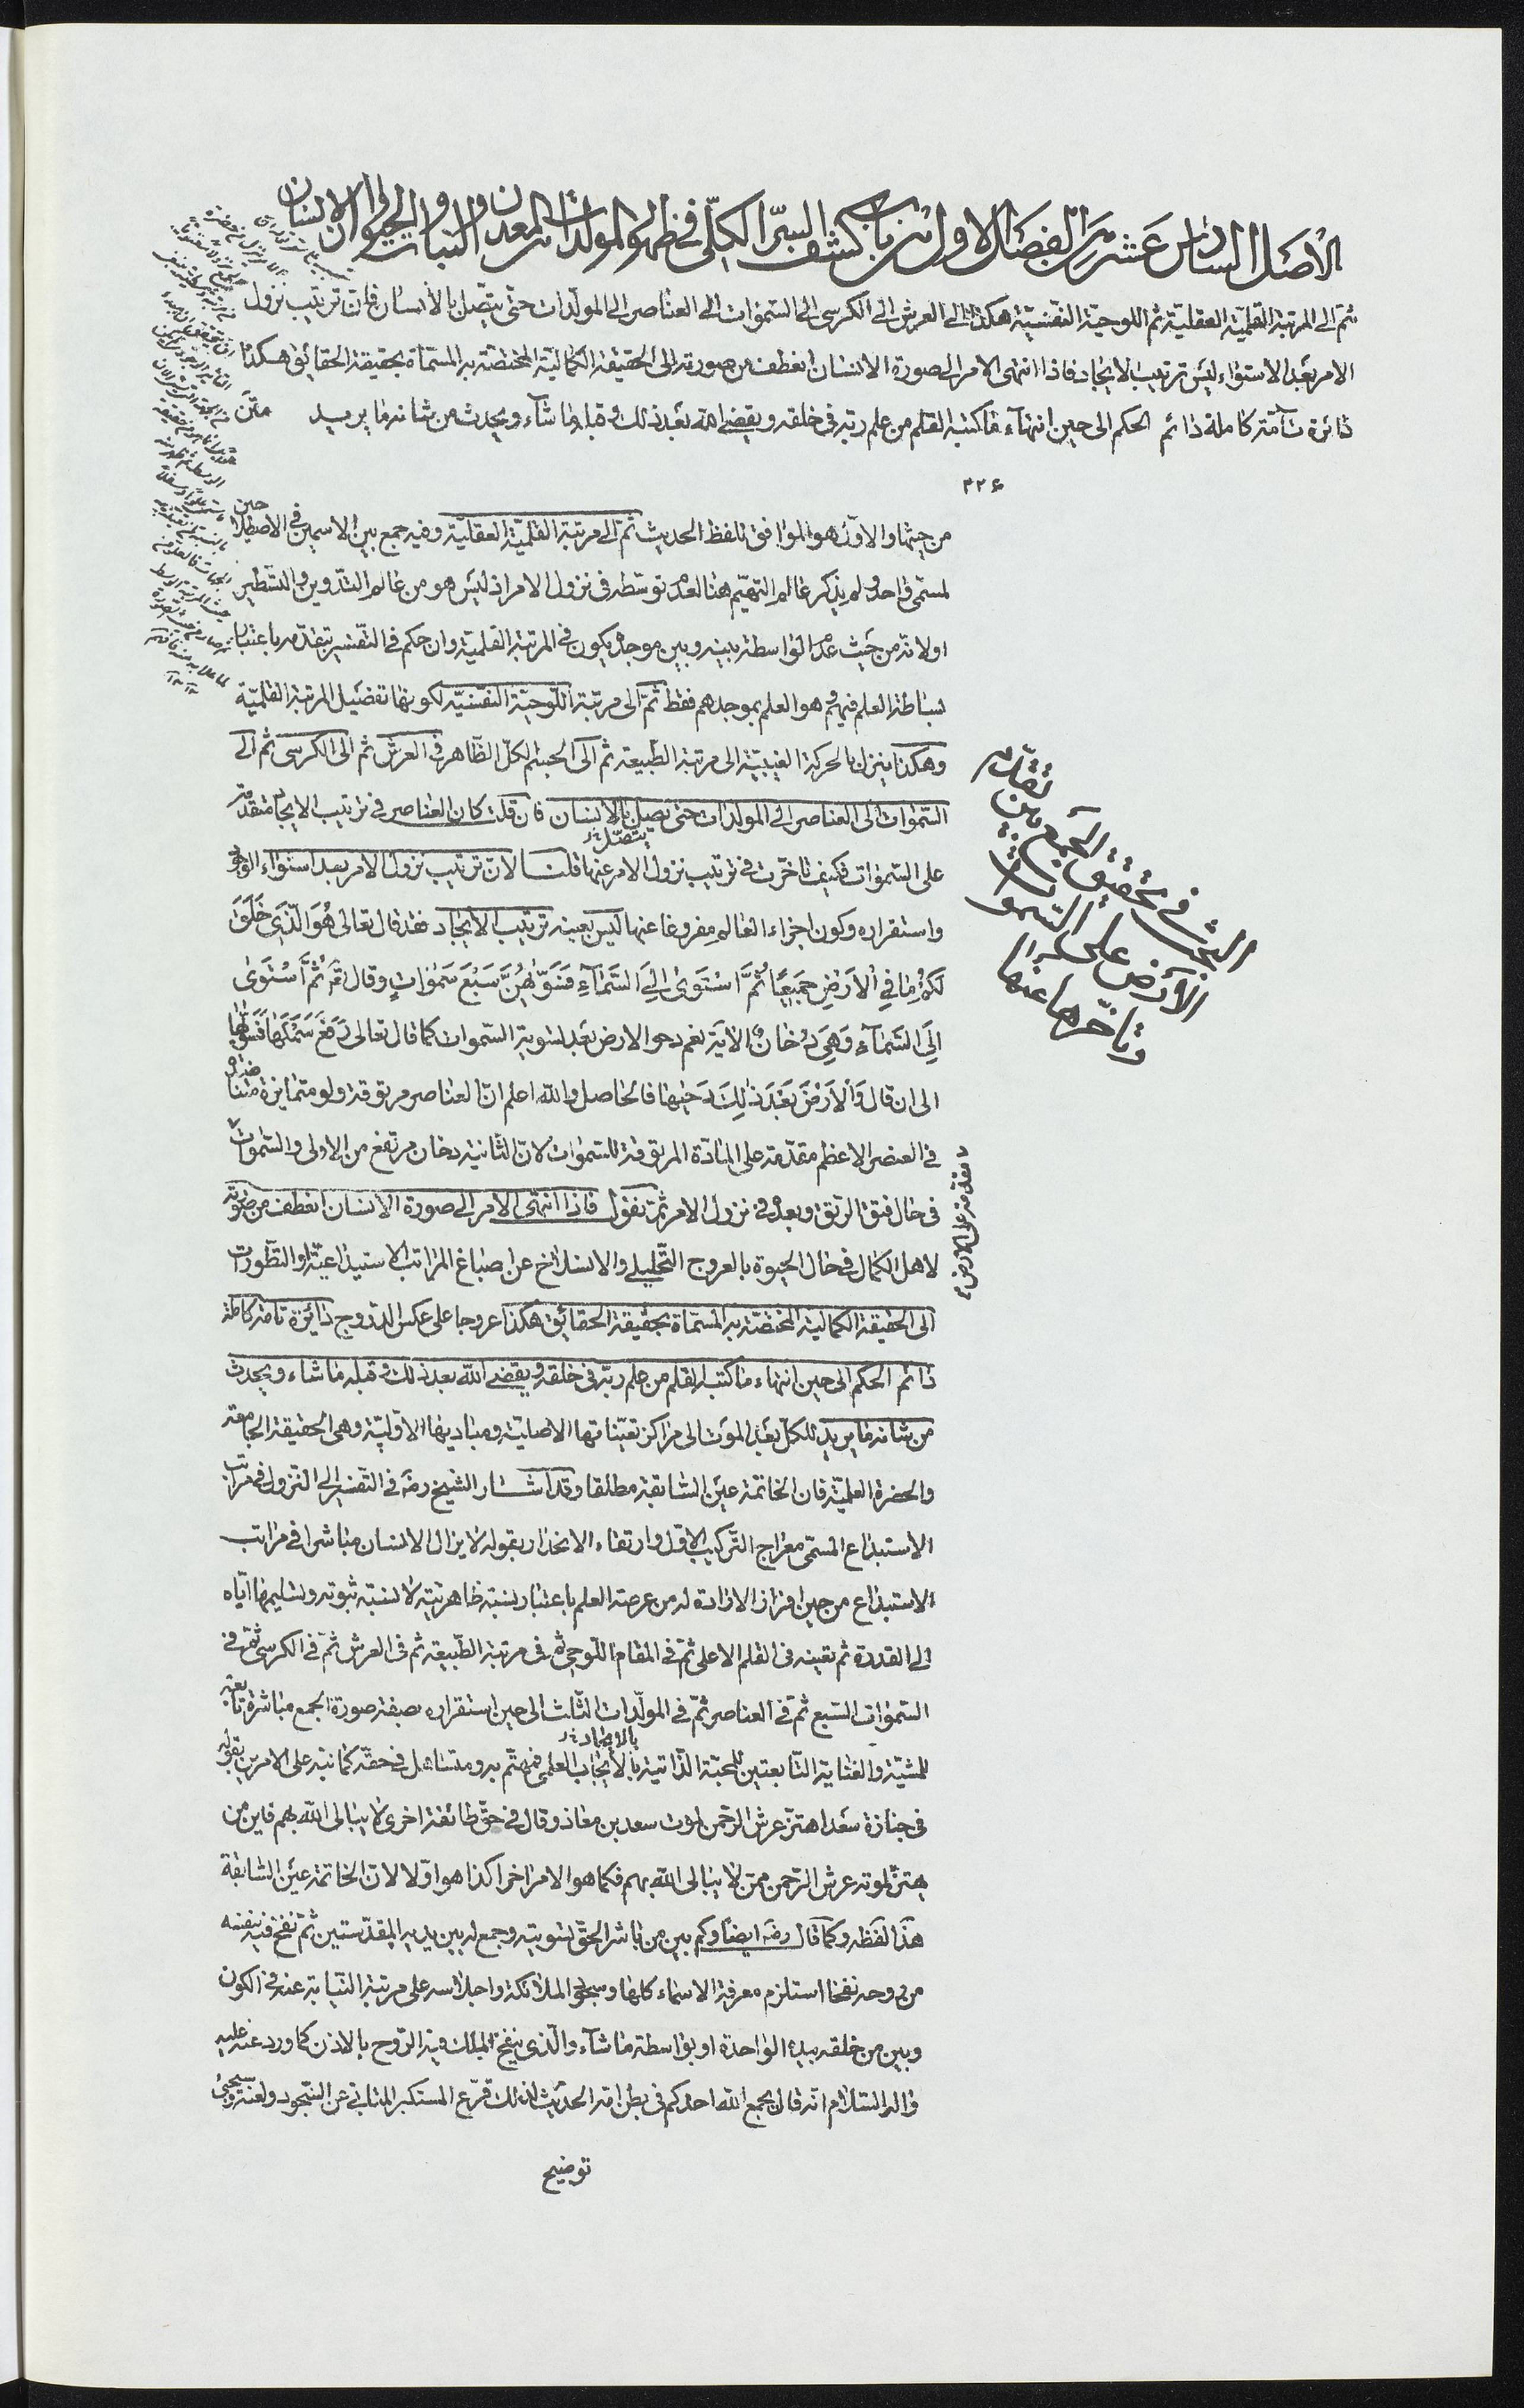 الأصل السادس عشر من الفصل الاول من باب كشف السرّ الكلّى فى ظهور المولدات من المعدن و النبات و الحيوان و الانسان
ثم الى المرتبة القلميّة العقليّة ثم اللوحيّة النفسيّة هكذا الى العرش الى الكرسى الى السّموات الى العناصر الى المولّدات حتى يتّصل بالأنسان فان ترتيب نزول
الامر بعد الاستواء ليس ترتيب الايجاد فاذا انتهى الامر الى صورة الانسان انعطف من صورته الى الحقيقة الكماليّة المختصّة به المسمّاة بحقيقة الحقائق هكذا
دائرة تآمّة كاملة دائم الحكم الى حين انتهاء ما كتبه القلم من علم ربّه فى خلقه و يقضى الله بعد ذلك و قبله ما شآء و يحدث من شانه ما يريد متن
٣٢٦
من حيثها و الاوّل هو الموافق للفظ الحديث ثمّ الى مرتبة القلميّة العقليّة و فيه جمع بين الاسمين فى الاصطلاحين
لمسمّى واحد و لم يذكر عالم التهيّم هنا لعدم توسّطه فى نزول الامر اذ ليس هو من عالم التّدوين و التّسطير
اولانّه من حيث عدم الواسطة بينه و بين موجده يكون فى المرتبة القلمية و ان حكم فى التفسير بتقدّمه باعتبار
بساطة العلم فيهم و هو العلم بموجدهم فقط ثمّ الى مرتبة اللّوحيّة النفسيّة لكونها تفصيل المرتبة القلميّة
و هكذا ينزل بالحركة الغيبيّة الى مرتبة الطّبيعة ثم الى الجسم الكلّ الظّاهر فى العرش ثم الى الكرسى ثم الى
السّموات الى العناصر الى المولدات حتى يصل بالانسان فان قلت كان العناصر فى ترتيب الايجاد متقدّمة
يتّصل
على السّموات فكيف تاخّرت فى ترتيب نزول الامر عنها قلنا لانّ ترتيب نزول الامر بعد استواء الوجود
و استقراره و كون اجزاء العالم مفروغا عنها ليس بعينه ترتيب الايجاد فقد قال تعالى هُوَ الَّذى خَلَقَ
لَكُمْ ما فِى الأَرْضِ جَميعًا ثُمَّ اسْتَوى اِلَى السَّمآءِ فَسَوّيهُنَّ سَبْعَ سَمواتٍ و قال ثمّ ثُمَّ اسْتَوى
اِلَى السَّمآءِ وَ هِىَ دُخانٌ الآية نعم دحو الارض بعد تسوية السّموات كما قال تعالى رَفَعَ سَمْكَها فَسَوّيها
الى ان قال وَ الأَرْضَ بَعْدَ ذلِكَ دَحيها فالحاصل و الله اعلم انّ العناصر مرتوقة و لو متمايزة
فى العنصر الاعظم مقدّمة على المادّة المرتوقة للسّموات لانّ الثانية دخان مرتفع من الاولى و السّموات
فى حال فتق الرّتق و بعده فى نزول الامر ثم نقول فاذا انتهى الامر الى صورة الانسان انعطف من صورته
لاهل الكمال فى حال الحيوة بالعروج التّحليلى و الانسلاخ عن اصباغ المراتب الاستيداعيّة و التّطورات
الى الحقيقة الكمالية المختصّة به المسمّاة بحقيقة الحقائق هكذا عروجا على عكس الدروج دائرة تامّة كاملة
دائم الحكم الى حين انتهاء ما كتبه القلم من علم ربّه فى خلقه و يقضى الله بعد ذلك و قبله ما شاء و يحدث
من شانه ما يريد للكلّ بعد الموت الى مراكز تعيّناتها الاصليّة و مباديها الاوّليّة و هى الحقيقة الجامعة
و الحضرة العلميّة فان الخاتمة عين السّابقة مطلقا و قد اشار الشيخ رضه فى التفسير الى النزول فى مراتب
الاستيداع المسمّى معراج التّركيب الاوّل و ارتقاء الانحدار بقوله لا يزال الانسان مباشرا فى مراتب
الاستيداع من حين افراز الارادة له من عرصة العلم باعتبار نسبة ظاهريّته لا نسبة ثبوته و تسليمها ايّاه
الى القدرة ثم تعينه فى القلم الاعلى ثمّ فى المقام اللّوحى ثم فى مرتبة الطّبيعة ثم فى العرش ثمّ فى الكرسى ثمّ فى
السّموات السّبع ثمّ فى العناصر ثمّ فى المولّدات الثّلث الى حين استقراره بصفة صورة الجمع مباشرة تابعة
بالايجاد
للمشيّة و العناية التّابعتين للمحبّة الذّاتية بالايجاب العلمى فمهتمّ به و متساهل فى حقّه كما نبّه على الامرين بقوله
فى جنازة سعد اهتزّ عرش الرّحمن لموت سعد بن معاذ و قال فى حقّ طائفة اخرى لا يبالى الله بهم فاين من
يهتزّ لموته عرش الرّحمن ممّن لا يبالى الله بهم فكما هو الامر اخرا كذا هو اوّلا لانّ الخاتمة عين السّابقة
هذا لفظه و كما قال رضه ايضا و كم بين من باشر الحقّ تسويته و جمع له بين يديه المقدّستين ثمّ نفخ فيه بنفسه
من روحه نفخا استلزم معرفة الاسماء كلها و سجود الملائكة و اجلاسه على مرتبة النّيابة عنه فى الكون
و بين من خلقه بيده الواحدة او بواسطة ما شآء و الّذى ينفخ الملك فيه الرّوح بالاذن كما ورد عنه عليه
و اله السّلام انّه قال يجمع الله احدكم فى بطن امّه الحديث لذلك قرّع المستكبر المتابى عن السّجود و لعنه و سيجئ
توضيح
البحث فى تحقيق الجمع بين تقدّم
الأرض على السّموات
و تاخّرها عنها
متقدّمة على الارض